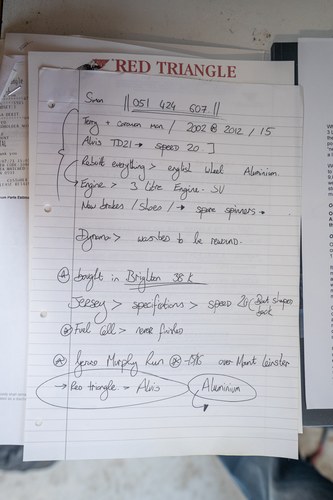 RED TRIANGLE
Simon || 051 424 607 ||
Terry + caravan man / 2002 @ 2012 / 15
Alvis TD21 → speed 20 ]
Rebuilt everything > english wheel Aluminium.
Engine > 3 Litre Engine - SU
New brakes / Shoes / → spare spinners →
Dynamo > to be rewound.
bought in Brighton 38 k
Jersey > specifications > speed back
Fuel Cell > never finished
Murphy Run over Mount Leinster
→ Red triangle = Alvis Aluminium